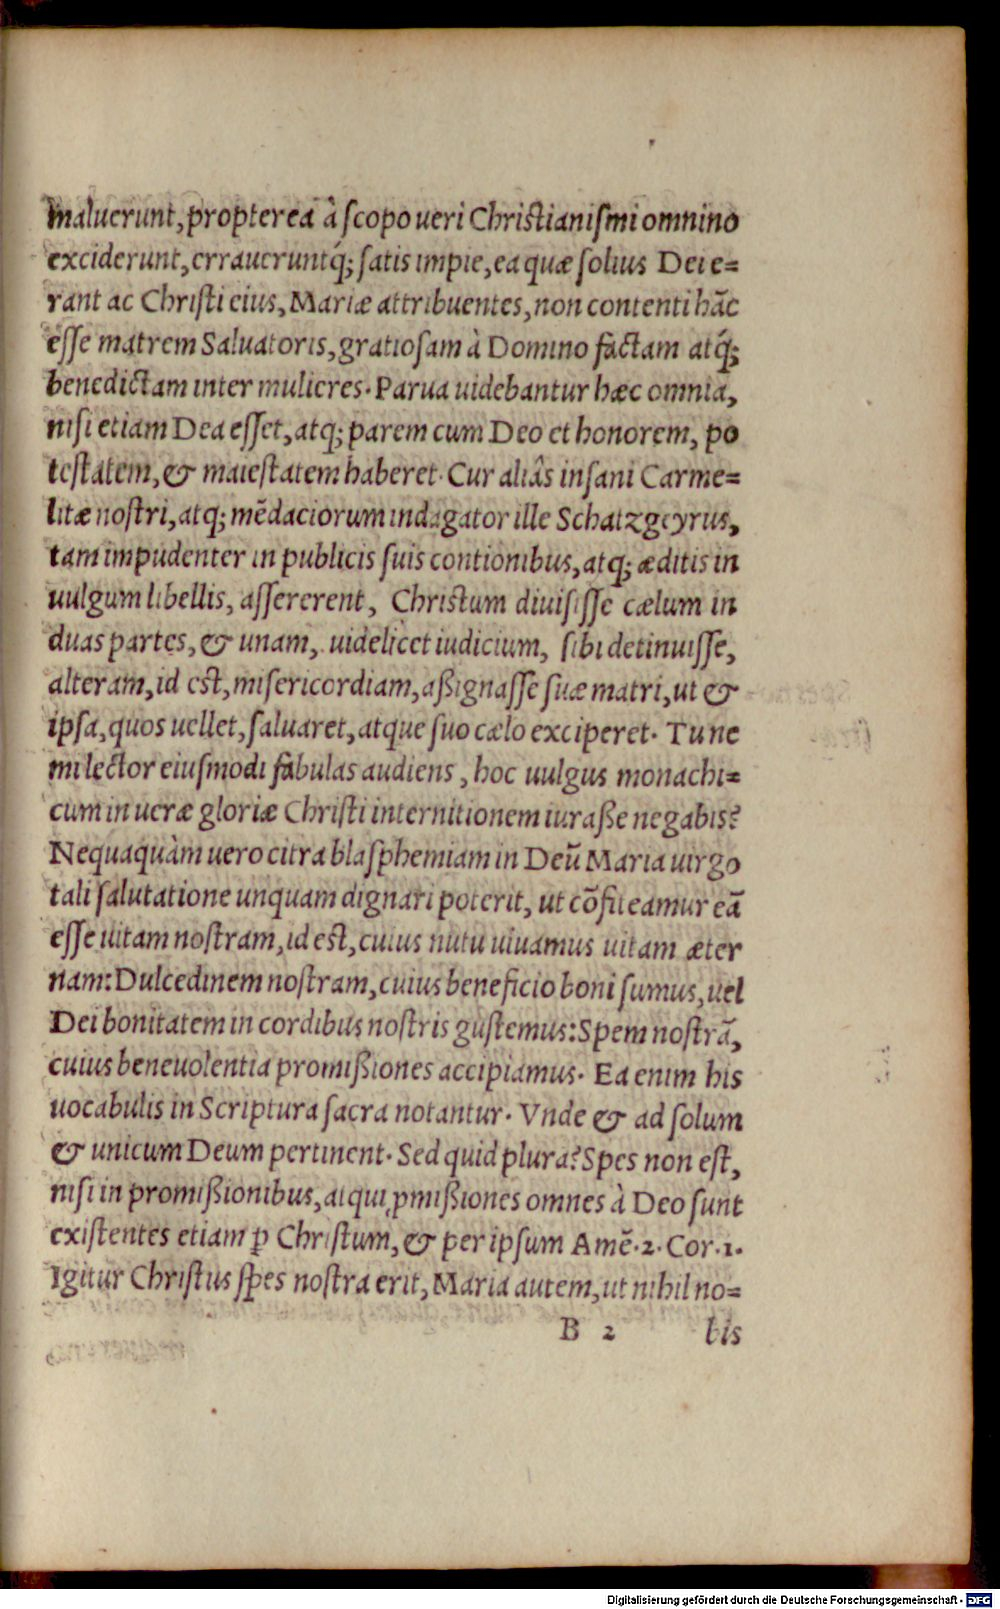 maluerunt, propterea à scopo ueri Christianismi omnino
exciderunt, erraueruntq́; satis impie, ea quæ solius Dei e=
rant ac Christi eius, Mariæ attribuentes, non contenti hāc
esse matrem Saluatoris, gratiosam à Domino factam atq́;
benedictam inter mulieres. Parua uidebantur hæc omnia,
nisi etiam Dea esset, atq; parem cum Deo et honorem, po
testatem, & maiestatem haberet. Cur aliâs insani Carme=
litæ nostri, atq; mēdaciorum indagator ille Schatzgeyrus,
tam impudenter in publicis suis contionibus, atq; æditis in
uulgum libellis, assererent, Christum diuisisse cælum in
duas partes, & unam, uidelicet iudicium, sibi detinuisse,
alteram, id est, misericordiam, aßignasse suæ matri, ut &
ipsa, quos uellet, saluaret, atque suo cælo exciperet. Tu nc
mi lector eiusmodi fabulas audiens, hoc uulgus monachi=
cum in ueræ gloriæ Christi internitionem iuraße negabis?
Nequaquàm uero citra blasphemiam in Deū Maria uirgo
tali salutatione unquam dignari poterit, ut cōfiteamur eā
esse uitam nostram, id est, cuius nutu uiuamus uitam æter
nam: Dulcedinem nostram, cuius beneficio boni sumus, uel
Dei bonitatem in cordibus nostris gustemus: Spem nostrā,
cuius beneuolentia promißiones accipiamus. Ea enim his
uocabulis in Scriptura sacra notantur. Vnde & ad solum
& unicum Deum pertinent. Sed quid plura? Spes non est,
nisi in promißionibus, atqui ꝓmißiones omnes à Deo sunt
existentes etiam ꝑ Christum, & per ipsum Amē. 2. Cor. 1.
Igitur Christus spes nostra erit, Maria autem, ut nihil no=
B 2 bis
Digitalisierung gefördert durch die Deutsche Forschungsgemeinschaft - DFG